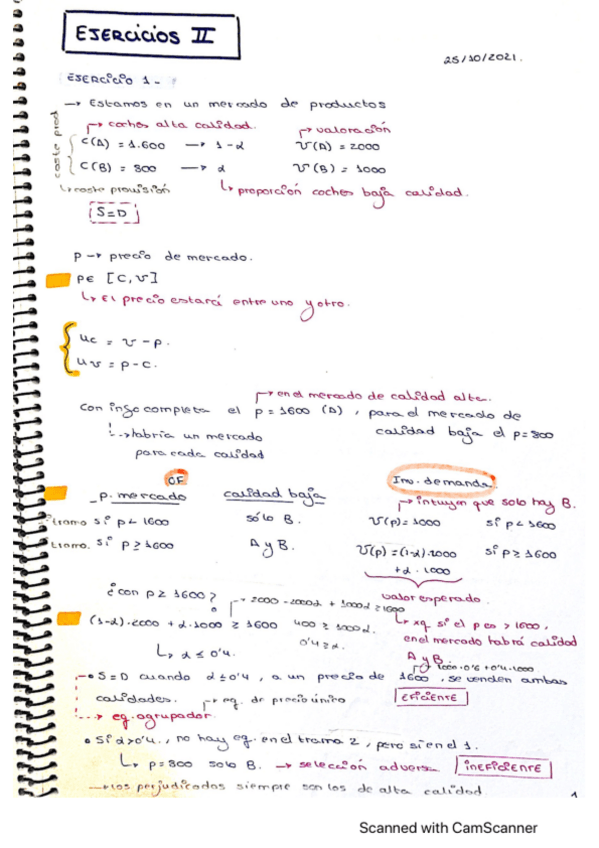 EJERCICIOS II
25/10/2021.
EJERCICIO 1-
→ Estamos en un mercado de productos
↱ coches alta calidad. ↱ valoración
coste prod
C(A) = 1.600 → 1-α V(A) = 2000
C(B) = 800 → α V(B) = 1000
↳ coste provisión ↳ proporción coches baja calidad.
S=D
P → precio de mercado.
P∈ [C, v]
↳ El precio estará entre uno y otro.
uc = v - p.
uv = p - c.
↱ en el mercado de calidad alta.
Con info completa el p = 1600 (A), para el mercado de
calidad baja el p = 800
↳ habría un mercado
para cada calidad
OF Inv. demanda.
p. mercado calidad baja ↱ intuyen que solo hay B.
tramo si p < 1600 sólo B. V(p) = 1000 si p < 1600
tramo. si p ≥ 1600 A y B. V(p) = (1-α)·2000 si p ≥ 1600
+α·1000
valor esperado.
¿con p ≥ 1600? → 2000 - 2000α + 1000α ≥ 1600
(1-α)·2000 + α·1000 ≥ 1600 400 ≥ 1000α.
0'4 ≥ α.
↳ xq. si el p es > 1600,
en el mercado habrá calidad
A y B.
↳ α ≤ 0'4.
2000·0'6 + 0'4·1000
• S=D cuando α ≤ 0'4, a un precio de 1600, se venden ambas
calidades. ↱ eq. de precio único EFICIENTE
→ eq. agrupador.
• Si α > 0'4, no hay eq. en el tramo 2, pero si en el 1.
↳ p = 800 solo B. → selección adversa INEFICIENTE
→ los perjudicados siempre son los de alta calidad
1
Scanned with CamScanner